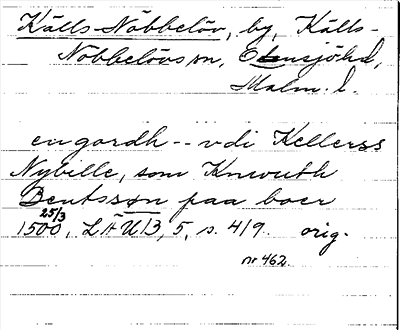 Källs-Nöbbelöv, by, Källs-
Nöbbelövs sn, Onsjöhd,
Malm. l.
en gordh -- vdi Kellerss
Nybille, som Knwuth
Bentssøn paa boer
25/3
1500, LÄU 13, 5, s. 419. orig.
nr 462